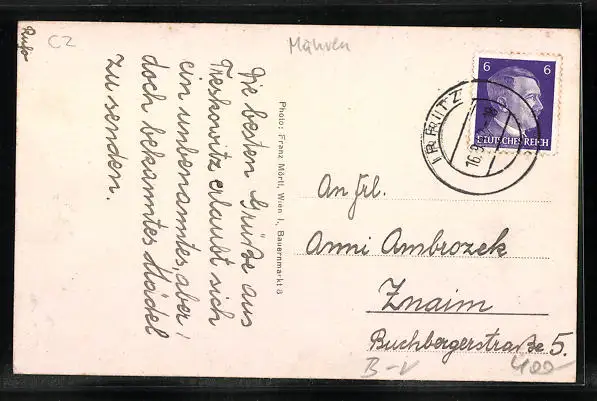 CZ
Mähren
Die besten Grüße aus
Treskowitz erlaubt sich
ein unbenanntes, aber
doch bekanntes Mädel
zu senden.
Photo: Franz Mörtl, Wien I., Bauernmarkt 8
6 6
DEUTSCHES REICH
An Frl.
Anni Ambrozek
Znaim
Buchbergerstraße 5.
B-V
400